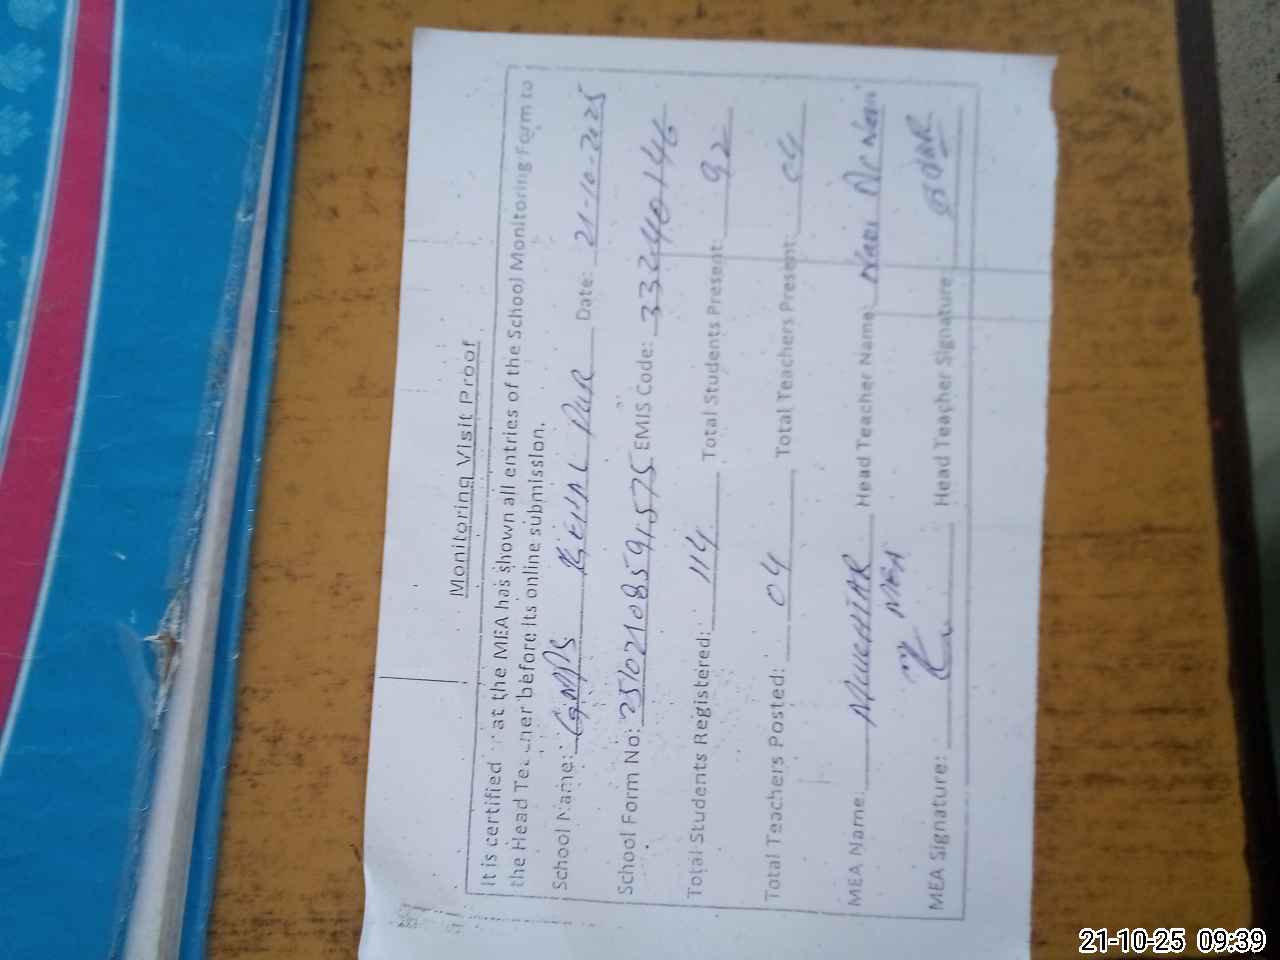 Monitoring Visit Proof
It is certified at the MEA has shown all entries of the School Monitoring Form to
the Head Teacher before its online submission.
School Name: GMPS KEHAL PUR Date: 21-10-2025
School Form No: 25102108591575 EMIS Code: 33240146
Total Students Registered: 114 Total Students Present: 92
Total Teachers Posted: 04 Total Teachers Present: 04
MEA Name: MUCHTAR Head Teacher Name:
MEA
MEA Signature: Head Teacher Signature:
21-10-25 09:39